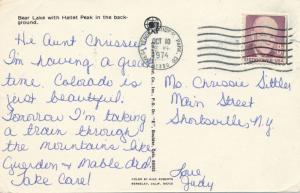 Bear Lake with Hallet Peak in the back-
ground.
He Aunt Chrissie
I'm having a great
time. Colorado is
just beautiful.
Tomorrow I'm taking
a train through
the mountains like
Guerdon & Mable did.
Take Care!
OCT 10
1974
Ms. Chrissie Sittler
Main Street
Shortsville, N.Y.
Love
Judy
COLOR BY MIKE ROBERTS
BERKELEY, CALIF. 94710